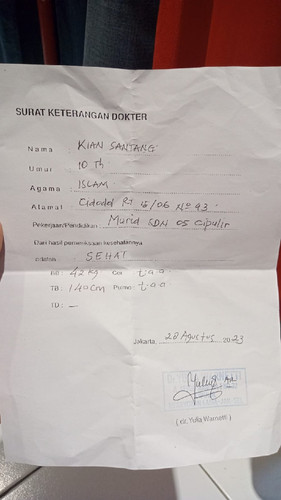 SURAT KETERANGAN DOKTER
Nama : KIAN SANTANG
Umur : 10 Th
Agama : ISLAM
Alamat : Cidodol Rt 15/06 No 93
Pekerjaan/Pendidikan : Murid SDN 05 Cipulir
Dari hasil pemeriksaan kesehatannya
adalah : SEHAT
BB : 42 Kg
TB : 140 cm
TD : —
Jakarta, 28 Agustus 2023
(dr. Yulia